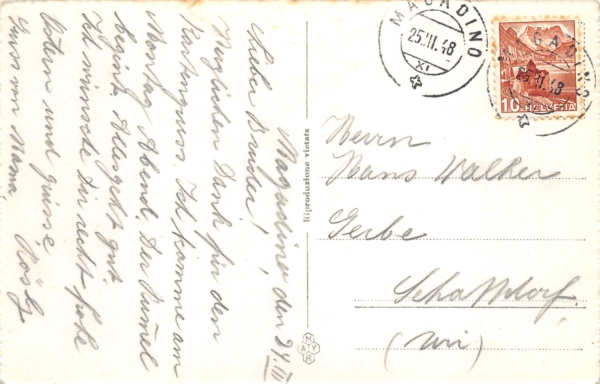 Magadino den 24.III
Lieber Bruder!
Den Dank für den
Kartengruss. Ich komme am
Montag Abend. Der
beginnt. Alles geht gut.
Ich wünsche Dir recht frohe
Ostern und grüsse
Gruss von Mama. Rösly
Riproduzione vietata
MAGADINO
25.III.48
XI
MAGADINO
25.III.48
10 HELVETIA
Herrn
Hans Walker
Gerbe
Schattdorf
(Uri)